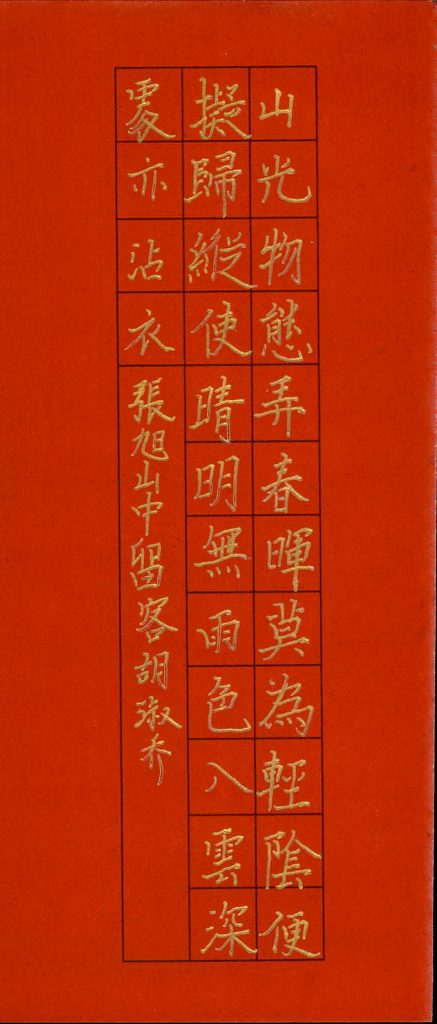 山光物態弄春暉莫為輕陰便
擬歸縱使晴明無雨色入雲深
處亦沾衣 張旭山中留客胡淑